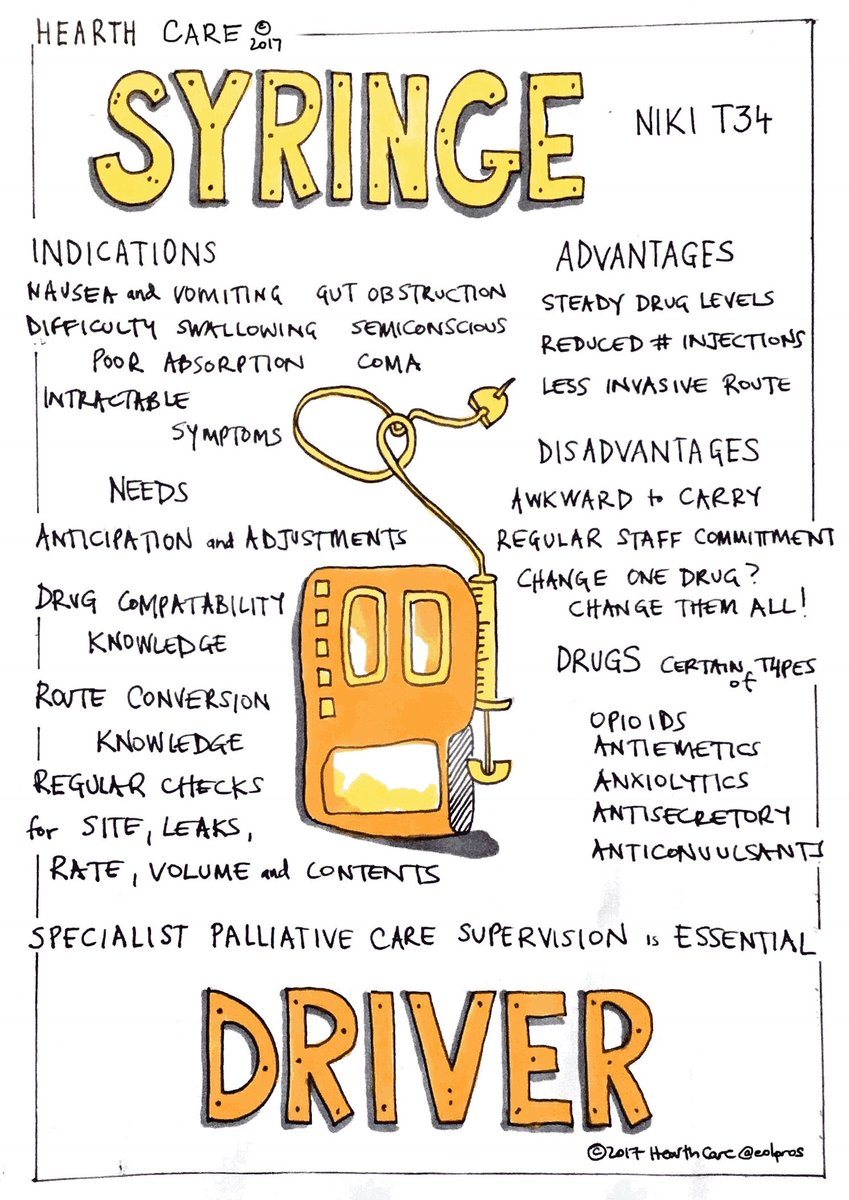 HEARTH CARE © 2017
SYRINGE
NIKI T34
INDICATIONS
NAUSEA and VOMITING GUT OBSTRUCTION
DIFFICULTY SWALLOWING SEMICONSCIOUS
POOR ABSORPTION COMA
INTRACTABLE
SYMPTOMS
NEEDS
ANTICIPATION and ADJUSTMENTS
DRUG COMPATABILITY
KNOWLEDGE
ROUTE CONVERSION
KNOWLEDGE
REGULAR CHECKS
for SITE, LEAKS,
RATE, VOLUME and CONTENTS
ADVANTAGES
STEADY DRUG LEVELS
REDUCED # INJECTIONS
LESS INVASIVE ROUTE
DISADVANTAGES
AWKWARD to CARRY
REGULAR STAFF COMMITTMENT
CHANGE ONE DRUG?
CHANGE THEM ALL!
DRUGS CERTAIN TYPES
of
OPIOIDS
ANTIEMETICS
ANXIOLYTICS
ANTISECRETORY
ANTICONVULSANTS
SPECIALIST PALLIATIVE CARE SUPERVISION is ESSENTIAL
DRIVER
©2017 Hearth Care @eolpros